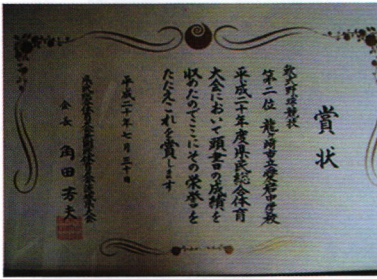 賞状
軟式野球競技
第二位 龍ヶ崎市立 中学校
平成二十年度県民総合体育
大会において頭書の成績を
収めたのでここにその栄誉を
たたえこれを賞します
平成二十年七月三十日
会長 角田芳夫